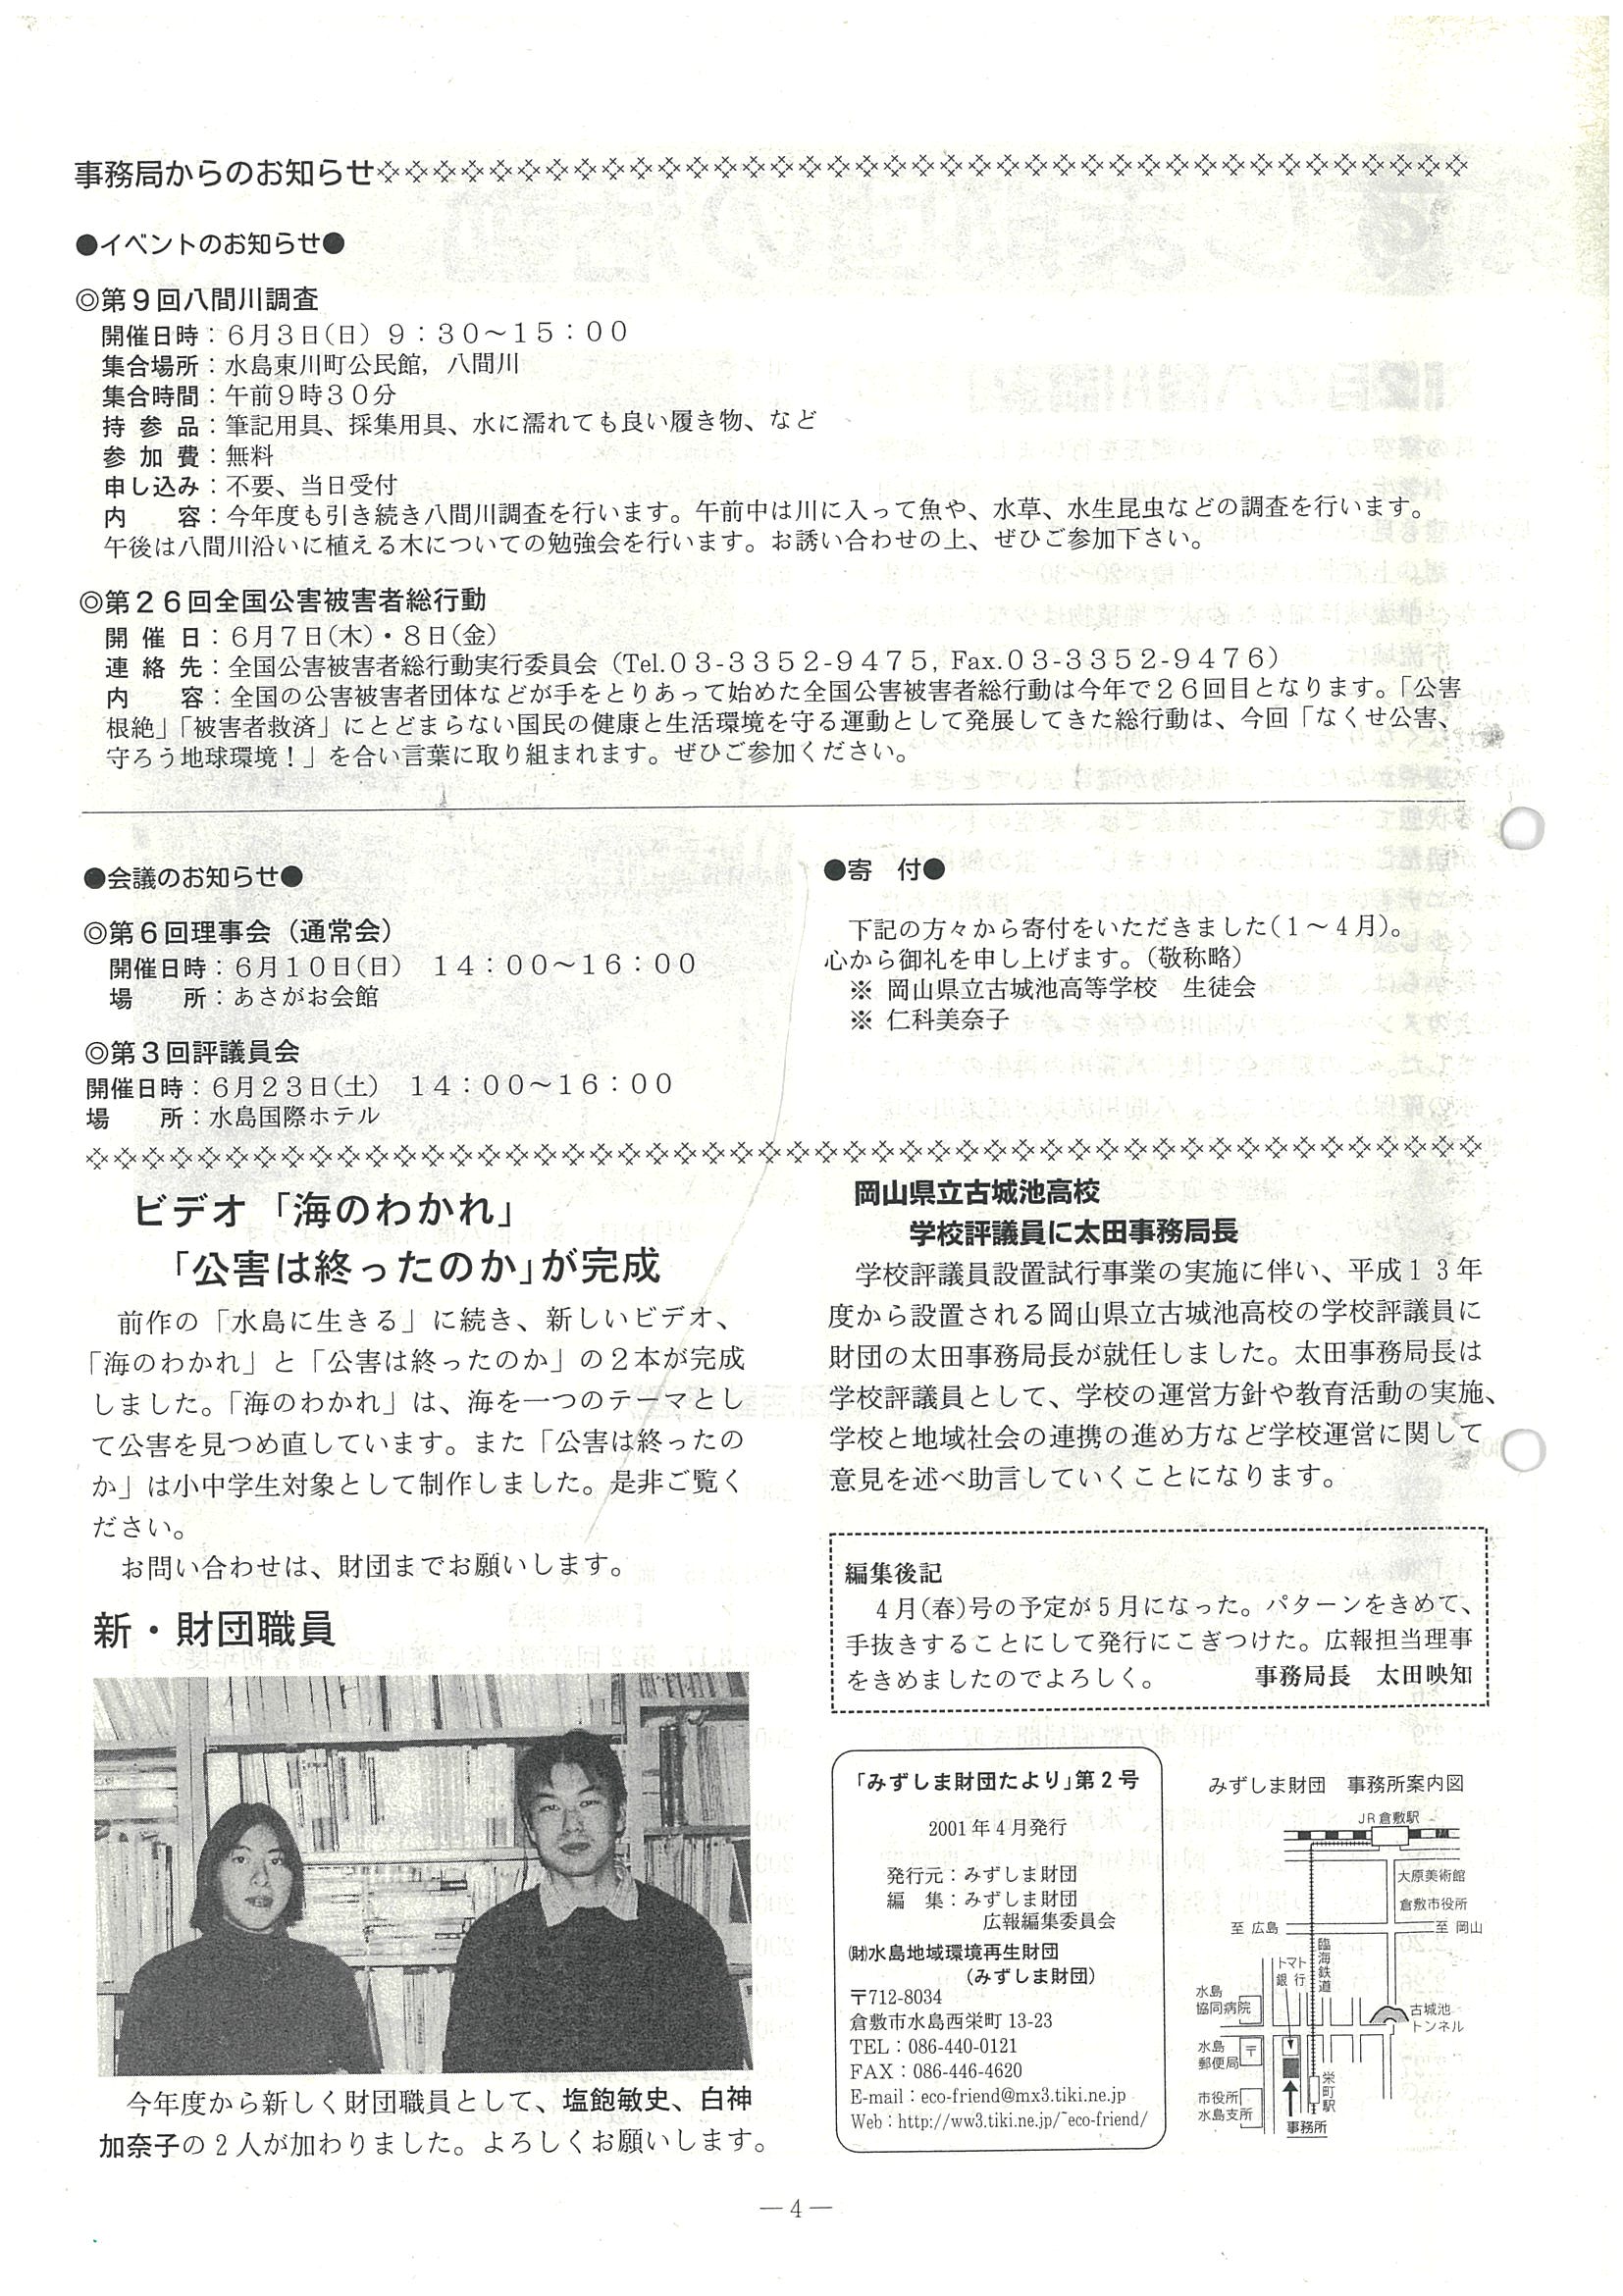 事務局からのお知らせ
●イベントのお知らせ●
◎第９回八間川調査
開催日時：６月３日(日) ９：３０～１５：００
集合場所：水島東川町公民館，八間川
集合時間：午前９時３０分
持 参 品：筆記用具、採集用具、水に濡れても良い履き物、など
参 加 費：無料
申し込み：不要、当日受付
内　　容：今年度も引き続き八間川調査を行います。午前中は川に入って魚や、水草、水生昆虫などの調査を行います。
午後は八間川沿いに植える木についての勉強会を行います。お誘い合わせの上、ぜひご参加下さい。
◎第２６回全国公害被害者総行動
開 催 日：６月７日(木)・８日(金)
連 絡 先：全国公害被害者総行動実行委員会（Tel.０３-３３５２-９４７５, Fax.０３-３３５２-９４７６）
内　　容：全国の公害被害者団体などが手をとりあって始めた全国公害被害者総行動は今年で２６回目となります。「公害
根絶」「被害者救済」にとどまらない国民の健康と生活環境を守る運動として発展してきた総行動は、今回「なくせ公害、
守ろう地球環境！」を合い言葉に取り組まれます。ぜひご参加ください。
●会議のお知らせ●
◎第６回理事会（通常会）
開催日時：６月１０日(日)　１４：００～１６：００
場　　所：あさがお会館
◎第３回評議員会
開催日時：６月２３日(土)　１４：００～１６：００
場　　所：水島国際ホテル
●寄　付●
下記の方々から寄付をいただきました(１～４月)。
心から御礼を申し上げます。（敬称略）
※ 岡山県立古城池高等学校　生徒会
※ 仁科美奈子
ビデオ「海のわかれ」
「公害は終ったのか」が完成
前作の「水島に生きる」に続き、新しいビデオ、
「海のわかれ」と「公害は終ったのか」の２本が完成
しました。「海のわかれ」は、海を一つのテーマとし
て公害を見つめ直しています。また「公害は終ったの
か」は小中学生対象として制作しました。是非ご覧く
ださい。
お問い合わせは、財団までお願いします。
新・財団職員
今年度から新しく財団職員として、塩飽敏史、白神
加奈子の２人が加わりました。よろしくお願いします。
岡山県立古城池高校
学校評議員に太田事務局長
学校評議員設置試行事業の実施に伴い、平成１３年
度から設置される岡山県立古城池高校の学校評議員に
財団の太田事務局長が就任しました。太田事務局長は
学校評議員として、学校の運営方針や教育活動の実施、
学校と地域社会の連携の進め方など学校運営に関して
意見を述べ助言していくことになります。
編集後記
４月(春)号の予定が５月になった。パターンをきめて、
手抜きすることにして発行にこぎつけた。広報担当理事
をきめましたのでよろしく。　事務局長　太田映知
「みずしま財団たより」第２号
2001年４月発行
発行元：みずしま財団
編　集：みずしま財団
広報編集委員会
㈶水島地域環境再生財団
（みずしま財団）
〒712-8034
倉敷市水島西栄町 13-23
TEL：086-440-0121
FAX：086-446-4620
E-mail：eco-friend@mx3.tiki.ne.jp
Web：http://ww3.tiki.ne.jp/~eco-friend/
みずしま財団　事務所案内図
JR倉敷駅
大原美術館
倉敷市役所
至 広島
至 岡山
臨海鉄道
トマト
銀 行
水島
協同病院
古城池
トンネル
水島
郵便局
〒
栄町駅
市役所
水島支所
事務所
― 4 ―